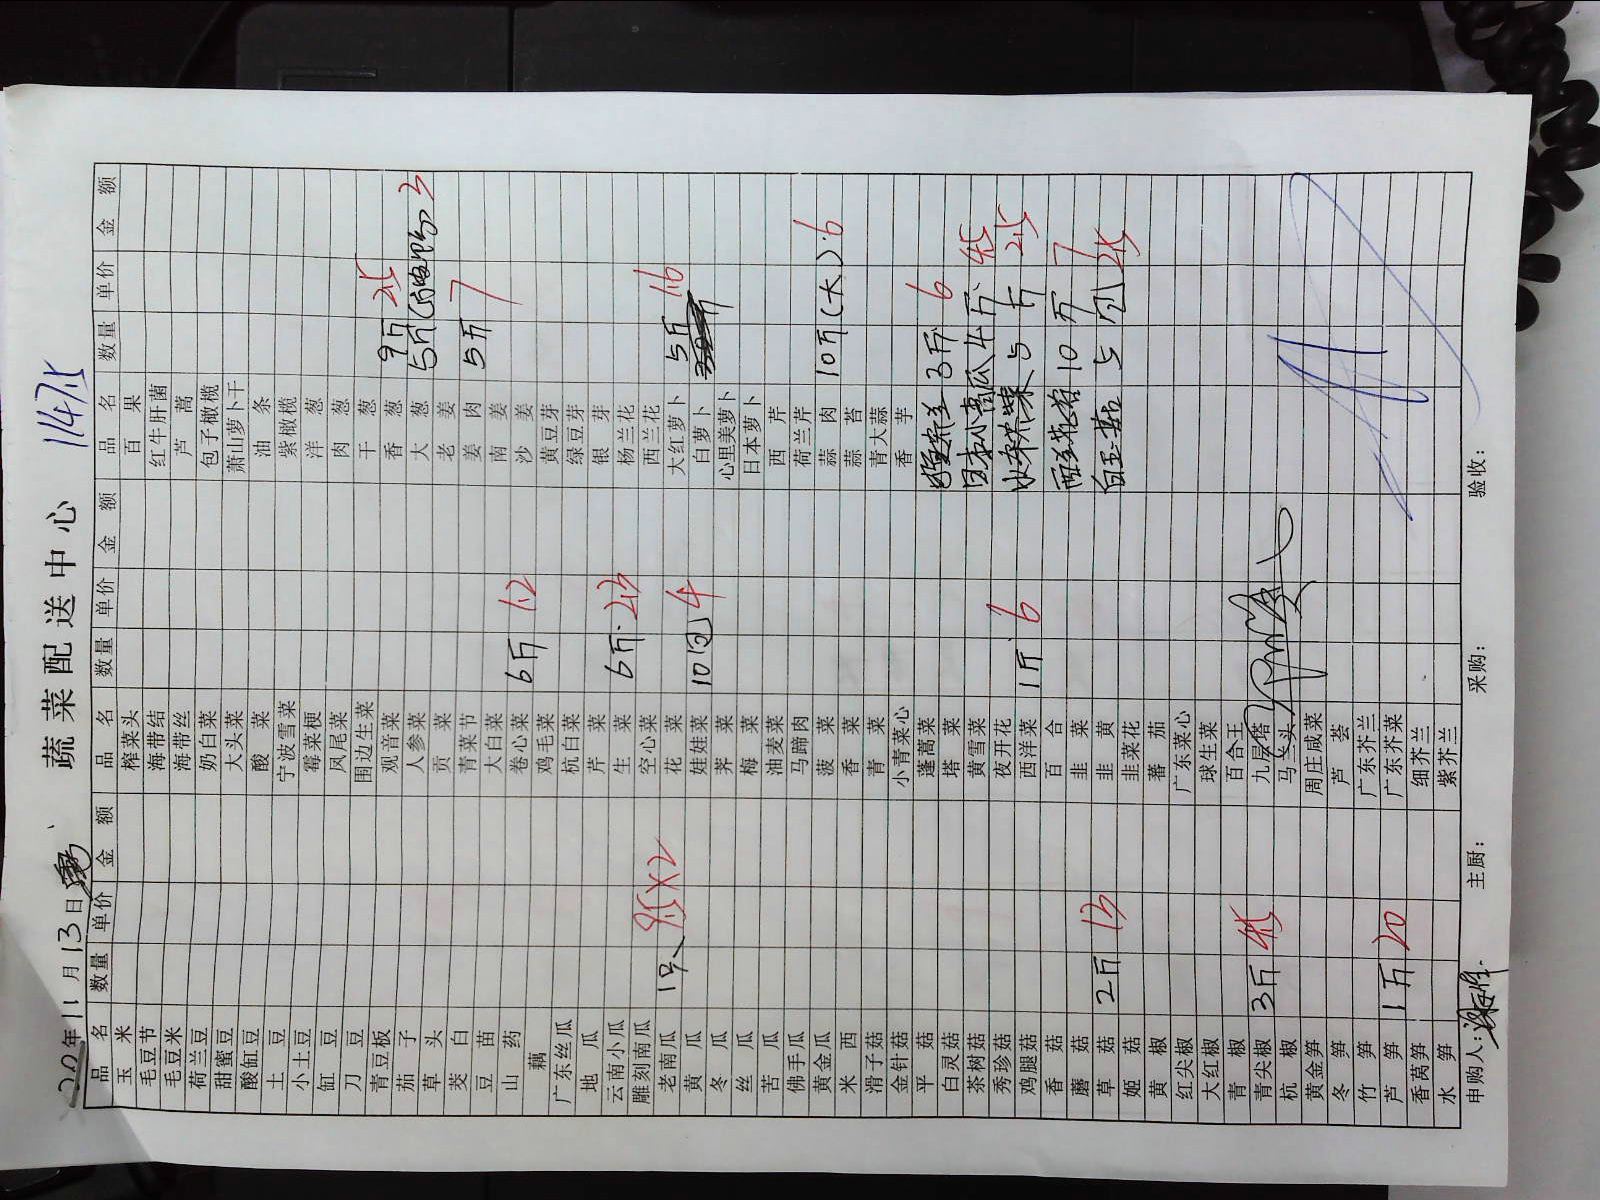 蔬菜配送中心 1147.5
年11月13日
品名 数量 单价 金额 品名 数量 单价 金额 品名 数量 单价 金额
玉米 榨菜头 百果
毛豆节 海带结 红牛肝菌
毛豆米 海带丝 芦蒿
荷兰豆 奶白菜 包子橄榄
甜蜜豆 大头菜 萧山萝卜干
酸缸豆 酸菜 油条
土豆 宁波雪菜 紫橄榄
小土豆 霉菜梗 洋葱
缸豆 凤尾菜 肉葱
刀豆 围边生菜 干葱
青豆板 观音菜 香葱 9斤 2.5
茄子 人参菜 大葱 5斤 3
草头 贡菜 老姜
茭白 青菜节 姜肉 5斤 7
豆苗 大白菜 南姜
山药 卷心菜 6斤 1.2 沙姜
藕 鸡毛菜 黄豆芽
广东丝瓜 杭白菜 绿豆芽
地瓜 芹菜 银芽
云南小瓜 生菜 6斤 2.3 杨兰花
雕刻南瓜 空心菜 西兰花
老南瓜 1只 85×2 花菜 大红萝卜 5斤 1.6
黄瓜 娃娃菜 10包 4 白萝卜
冬瓜 荠菜 心里美萝卜
丝瓜 梅菜 日本萝卜
苦瓜 油麦菜 西芹
佛手瓜 马蹄肉 荷兰芹
黄金瓜 菠菜 蒜肉 10斤(大) 6
米西 香菜 蒜苔
滑子菇 青菜 青大蒜
金针菇 小青菜心 香芋
平菇 蓬蒿菜 3斤 6
白灵菇 塔菜
茶树菇 黄雪菜 日本小南瓜 4斤 4.5
秀珍菇 夜开花
鸡腿菇 西洋菜 1斤 6 水果 5斤 2.5
香菇 百合
蘑菇 韭菜 西兰花 10斤 7
草菇 2斤 13 韭黄 白玉菇 5包 2.5
姬菇 韭菜花
黄椒 蕃茄
红尖椒 广东菜心
大红椒 球生菜
青椒 百合王
青尖椒 3斤 4.5 九层塔
杭椒 马兰头
黄金笋 周庄咸菜
冬笋 芦荟
竹笋 广东芥兰
芦笋 1斤 20 广东芥菜
香莴笋 细芥兰
水笋 紫芥兰
申购人： 主厨： 采购： 验收：